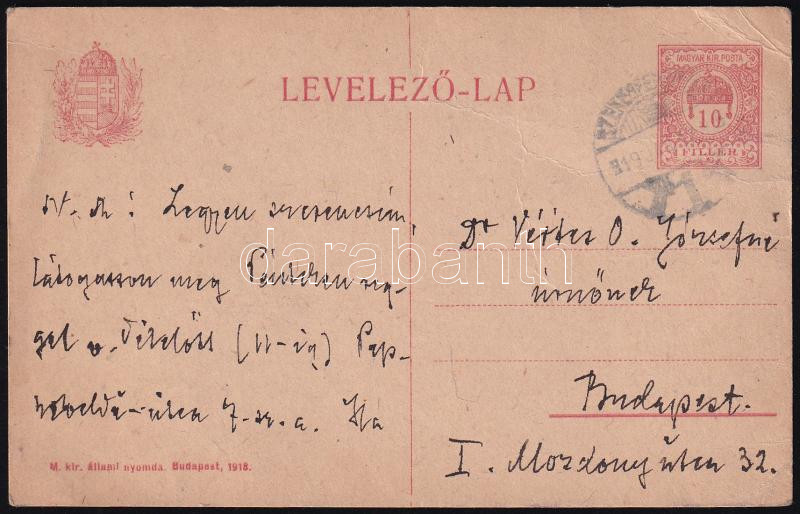 LEVELEZŐ-LAP
MAGYAR KIR. POSTA
10
FILLÉR
N. d: Legyen szerencsém,
látogasson meg Pénteken reg-
gel v. délelőtt (11-ig) Pap-
növelde-utca 7. sz. a. Ha
Dr Vértes O. Józsefné
úrnőnek
Budapest.
I. Mozdony utca 32.
M. kir. állami nyomda. Budapest, 1918.
darabanth